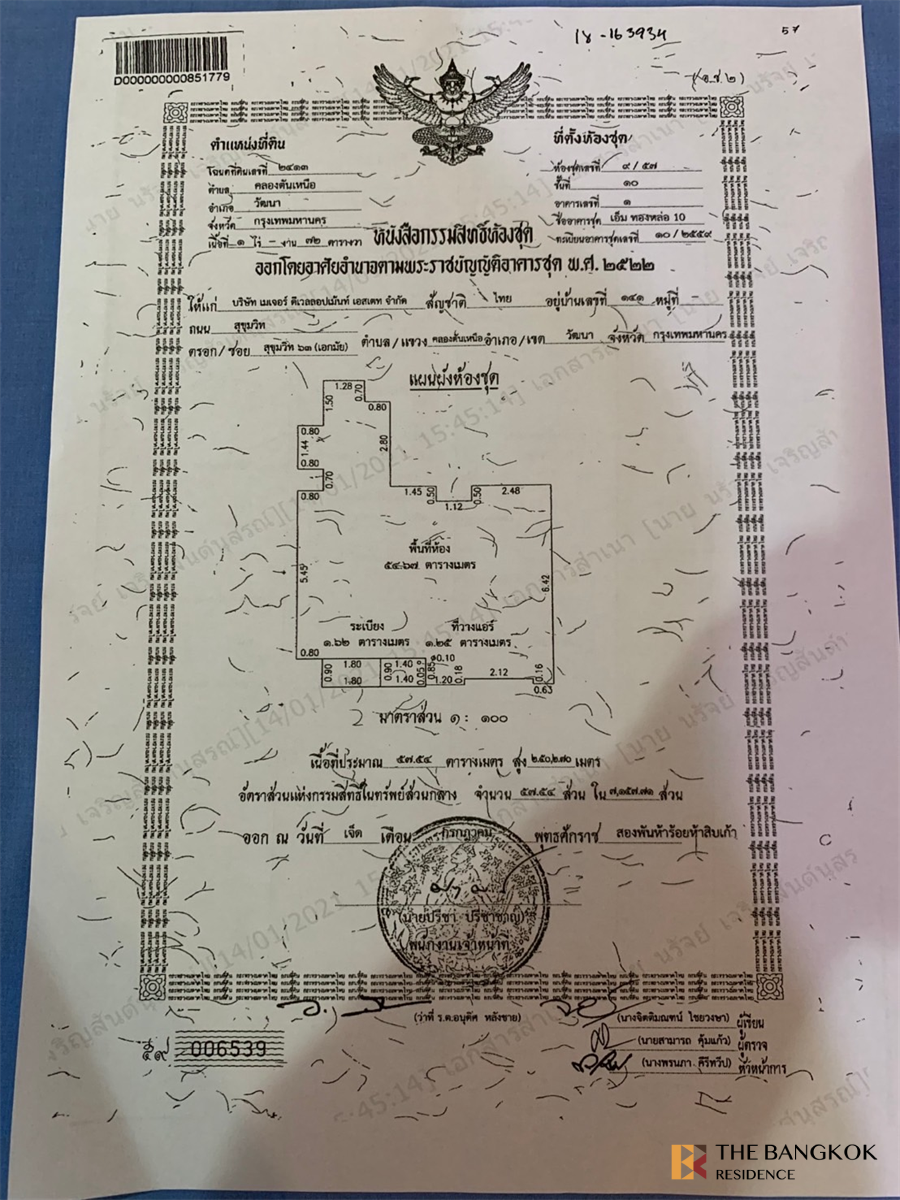 18-163934
57
D000000000851779
(อ.ช.๒)
ตำแหน่งที่ดิน
โฉนดที่ดินเลขที่ ๒๔๑๓
ตำบล คลองตันเหนือ
อำเภอ วัฒนา
จังหวัด กรุงเทพมหานคร
เนื้อที่ ๑ ไร่ - งาน ๗๒ ตารางวา
ที่ตั้งห้องชุด
ห้องชุดเลขที่ ๙/๕๗
ชั้นที่ ๑๐
อาคารเลขที่ ๑
ชื่ออาคารชุด เอ็ม ทองหล่อ 10
ทะเบียนอาคารชุดเลขที่ ๑๐/๒๕๕๙
หนังสือกรรมสิทธิ์ห้องชุด
ออกโดยอาศัยอำนาจตามพระราชบัญญัติอาคารชุด พ.ศ.๒๕๒๒
ให้แก่ บริษัท เมเจอร์ ดีเวลลอปเม้นท์ เอสเตท จำกัด สัญชาติ ไทย อยู่บ้านเลขที่ ๑๔๑ หมู่ที่ -
ถนน สุขุมวิท
ตรอก/ซอย สุขุมวิท ๖๓ (เอกมัย) ตำบล/แขวง คลองตันเหนือ อำเภอ/เขต วัฒนา จังหวัด กรุงเทพมหานคร
แผนผังห้องชุด
1.28
0.70
1.50
0.80
0.80
1.44
2.80
0.80
0.70
0.80
1.45
0.50
1.12
0.50
2.48
พื้นที่ห้อง
๕๔.๖๗ ตารางเมตร
5.45
6.42
ระเบียง
๑.๖๒ ตารางเมตร
ที่วางแอร์
๑.๒๕ ตารางเมตร
0.80
0.90
1.80
1.80
0.90
1.40
1.40
0.85
0.10
0.18
1.20
2.12
0.16
0.63
มาตราส่วน ๑ : ๑๐๐
เนื้อที่ประมาณ ๕๗.๕๔ ตารางเมตร สูง ๒.๕๐,๒.๗๐ เมตร
อัตราส่วนแห่งกรรมสิทธิ์ในทรัพย์ส่วนกลาง จำนวน ๕๗.๕๔ ส่วน ใน ๗,๑๕๗.๗๑ ส่วน
ออก ณ วันที่ เจ็ด เดือน กรกฎาคม พุทธศักราช สองพันห้าร้อยห้าสิบเก้า
(นายปรีชา ปรีชาชาญ)
พนักงานเจ้าหน้าที่
(ว่าที่ ร.ต.อนุศิศ หลังชาย)
(นางจิตติมณฑน์ ไชยวงษา) ผู้เขียน
(นายสามารถ คุ้มแก้ว) ผู้ตรวจ
(นางพรนภา คีรีทวีป) หัวหน้าการ
๕๙ 006539
THE BANGKOK
RESIDENCE